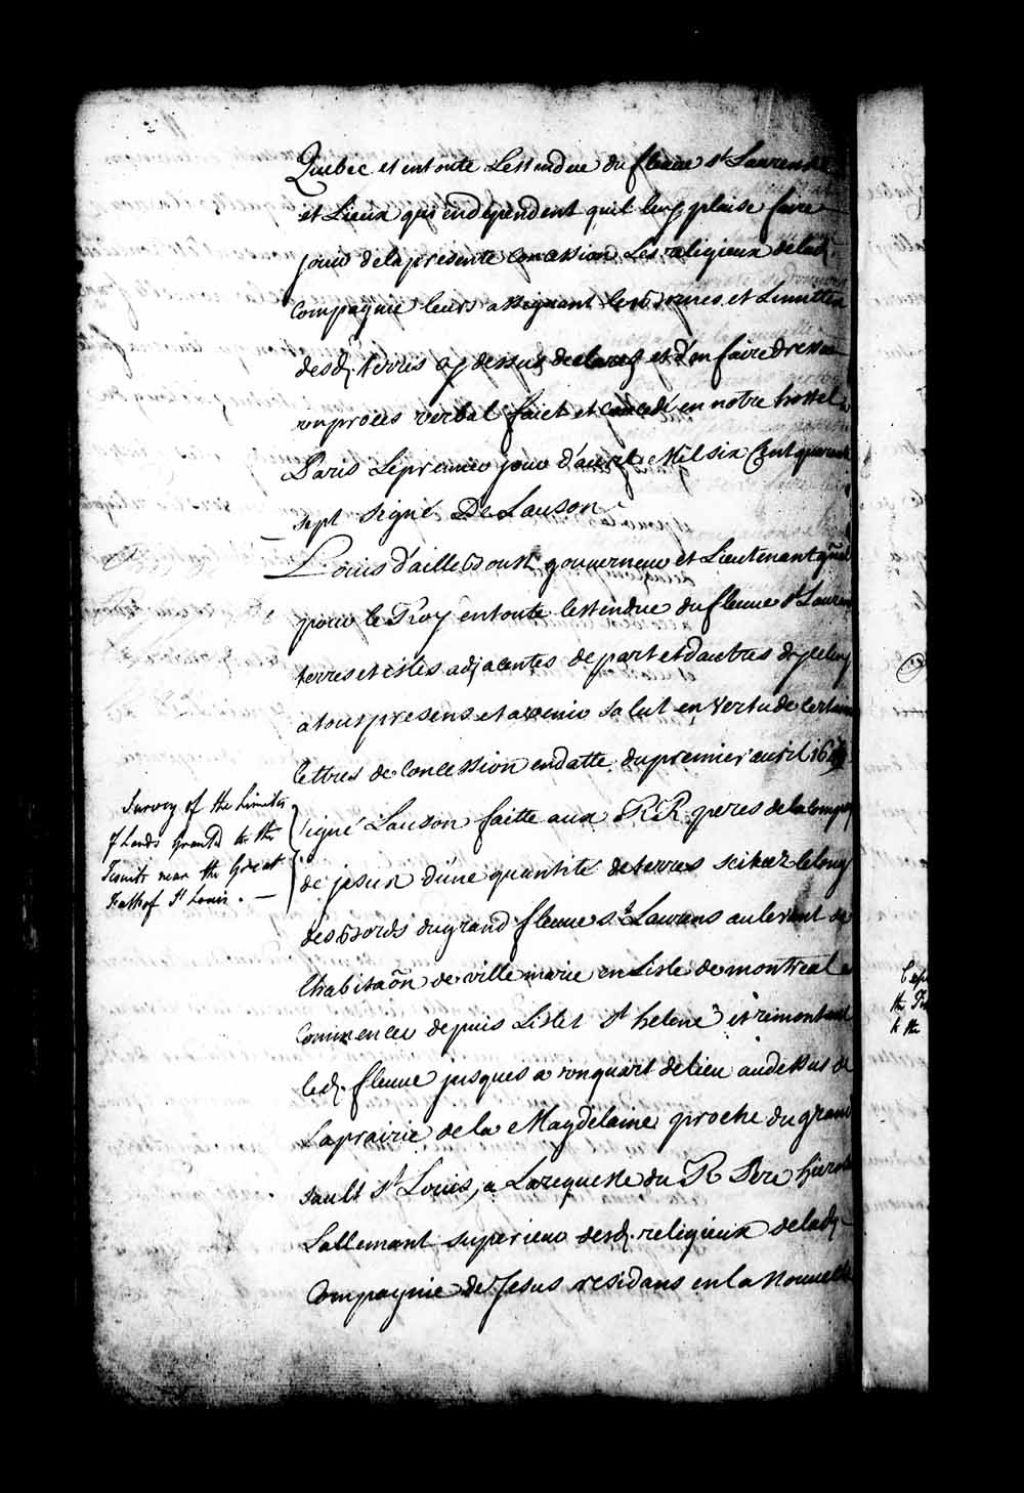 Quebec et en toute Lestendue du fleuve St Laurens
et Lieux qui en dependent quil leur plaise faire
jouir de la presente Concession Les religieux de lad.
Compagnie leurs assignant les bornes et Limittes
desd. terres cy dessus declarez et d'en faire dresser
un procés verbal faict et concedé en notre hostel a
Paris Le premier jour d'avril Mil six Cent quarante
sept signé De Lauson
Louis d'ailleboust gouverneur et Lieutenant gñal
pour le Roy en toute lestendue du fleuve St Laurens
terres et isles adjacentes de part et dautres d'yceluy
à tous presens et a venir salut en Vertu de Certaines
Lettres de Concession en datte du premier avril 1647
signé Lauson faitte aux R.R. peres de la Compag
de jesus d'une quantité de terres scitüez le long
des bords du grand fleuve St Laurens au levant de
Lhabitaõn de ville marie en Lisle de montreal a
Commencer depuis Lislet St helene et remontant
led. fleuve jusques a un quart de lieu au dessus de
Laprairie de la Magdelaine proche du grand
sault St Louis, a La requeste du R Pere hierosme
Lallemant superieur desd. religieux de lad.
Compagnie de Jesus residans en la Nouvelle
Survey of the Limits
of Lands Granted to the
Jesuits near the Great
Falls of St Louis. —
the
to the